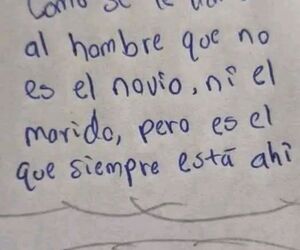 Como se le
al hombre que no
es el novio, ni el
marido, pero es el
que siempre está ahi